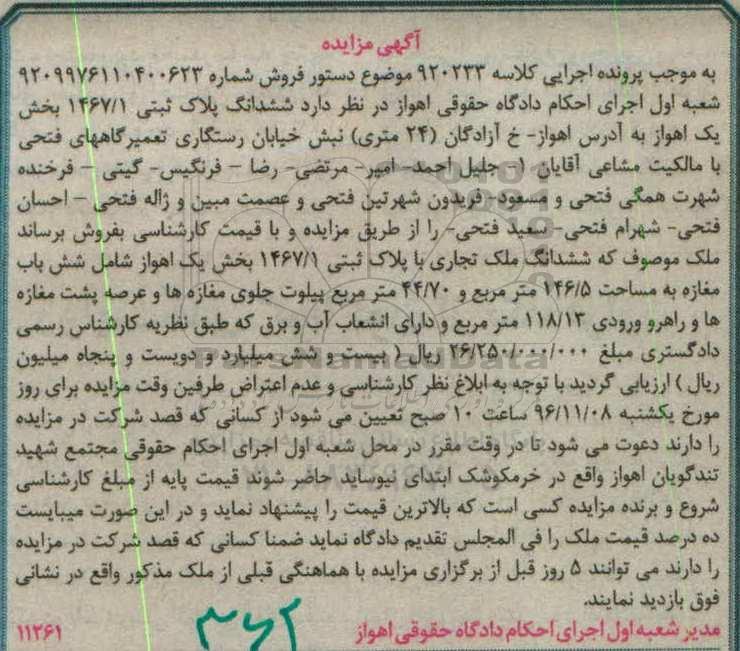 آگهی مزایده
به موجب پرونده اجرایی کلاسه ۹۲۰۲۳۳ موضوع دستور فروش شماره ۹۲۰۹۹۷۶۱۱۰۴۰۰۶۲۳
شعبه اول اجرای احکام دادگاه حقوقی اهواز در نظر دارد ششدانگ پلاک ثبتی ۱۴۶۷/۱ بخش
یک اهواز به آدرس اهواز- خ آزادگان (۲۴ متری) نبش خیابان رستگاری تعمیرگاههای فتحی
با مالکیت مشاعی آقایان ۱- جلیل احمد- امیر- مرتضی- رضا – فرنگیس- گیتی – فرخنده
شهرت همگی فتحی و مسعود- فریدون شهرتین فتحی و عصمت مبین و ژاله فتحی – احسان
فتحی- شهرام فتحی- سعید فتحی- را از طریق مزایده و با قیمت کارشناسی بفروش برساند
ملک موصوف که ششدانگ ملک تجاری با پلاک ثبتی ۱۴۶۷/۱ بخش یک اهواز شامل شش باب
مغازه به مساحت ۱۴۶/۵ متر مربع و ۴۴/۷۰ متر مربع پیلوت جلوی مغازه ها و عرصه پشت مغازه
ها و راهرو ورودی ۱۱۸/۱۳ متر مربع و دارای انشعاب آب و برق که طبق نظریه کارشناس رسمی
دادگستری مبلغ ۲۶/۲۵۰/۰۰۰/۰۰۰ ریال ( بیست و شش میلیارد و دویست و پنجاه میلیون
ریال ) ارزیابی گردید با توجه به ابلاغ نظر کارشناسی و عدم اعتراض طرفین وقت مزایده برای روز
مورخ یکشنبه ۹۶/۱۱/۰۸ ساعت ۱۰ صبح تعیین می شود از کسانی که قصد شرکت در مزایده
را دارند دعوت می شود تا در وقت مقرر در محل شعبه اول اجرای احکام حقوقی مجتمع شهید
تندگویان اهواز واقع در خرمکوشک ابتدای نیوساید حاضر شوند قیمت پایه از مبلغ کارشناسی
شروع و برنده مزایده کسی است که بالاترین قیمت را پیشنهاد نماید و در این صورت میبایست
ده درصد قیمت ملک را فی المجلس تقدیم دادگاه نماید ضمنا کسانی که قصد شرکت در مزایده
را دارند می توانند ۵ روز قبل از برگزاری مزایده با هماهنگی قبلی از ملک مذکور واقع در نشانی
فوق بازدید نمایند.
مدیر شعبه اول اجرای احکام دادگاه حقوقی اهواز ۱۱۲۶۱
ParsNamadData